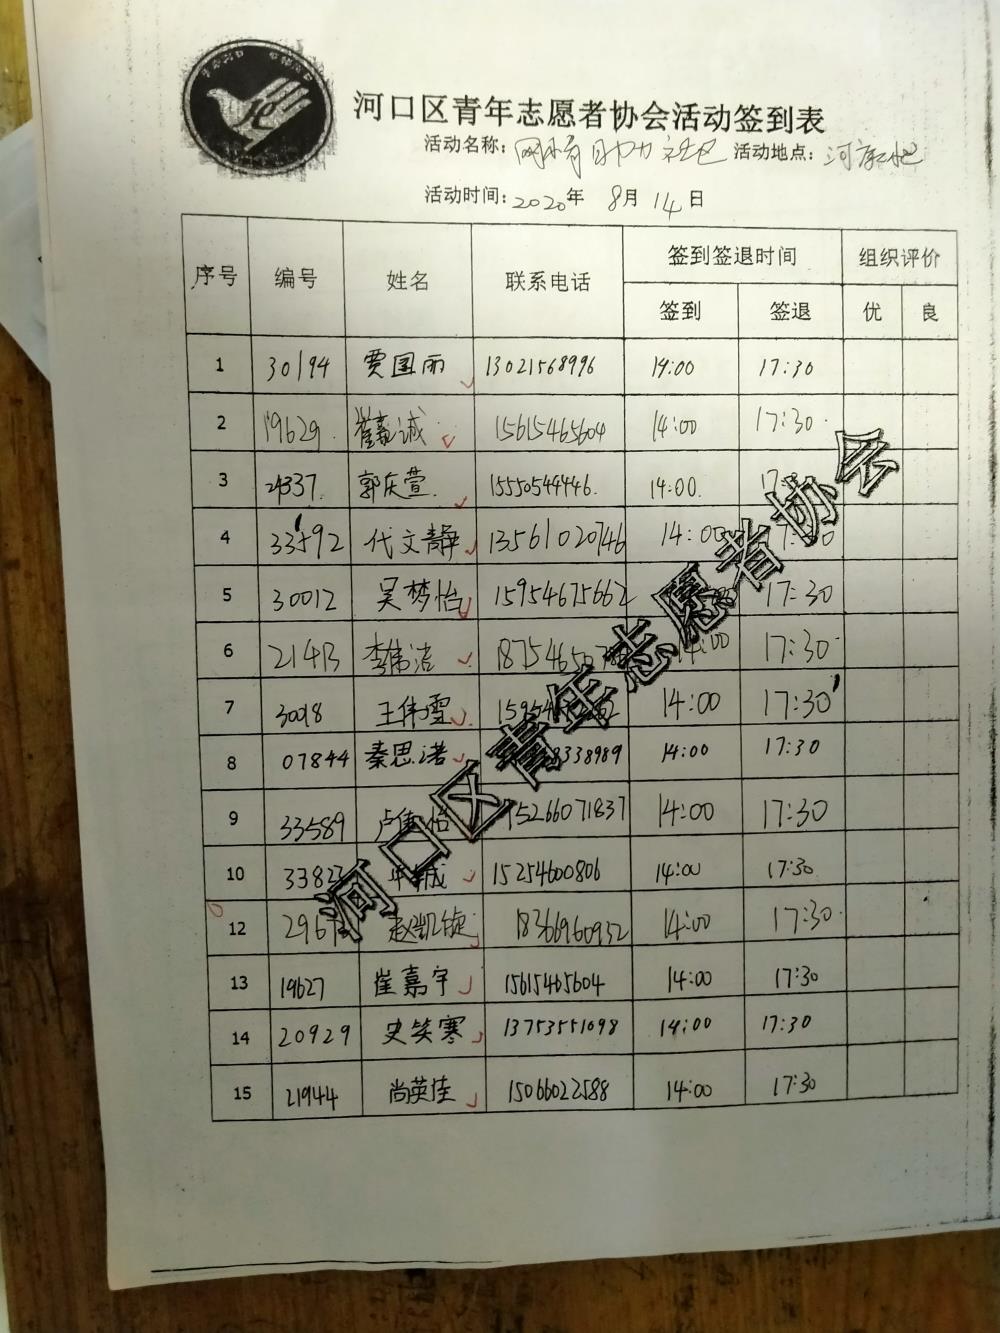 河口区青年志愿者协会活动签到表
活动名称: 助力社区 活动地点:
活动时间: 2020年 8月 14日
序号 编号 姓名 联系电话 签到签退时间 组织评价
签到 签退 优 良
1 30194 贾国丽 13021568996 14:00 17:30
2 19629 崔嘉诚 15615465604 14:00 17:30
3 24337 郭庆萱 15550544446 14:00
4 代文静 13561020746 14:00
5 30012 吴梦怡 15954675662 17:30
6 李伟洁 14:00 17:30
7 王伟雪 14:00 17:30
8 07844 秦思诺 14:00 17:30
9 33589 15266071837 14:00 17:30
10 15254600806 14:00 17:30
12 赵凯旋 18366960932 14:00 17:30
13 19627 崔嘉宇 15615465604 14:00 17:30
14 20929 史笑寒 13753551098 14:00 17:30
15 21944 尚英佳 15066022588 14:00 17:30
河口区青年志愿者协会